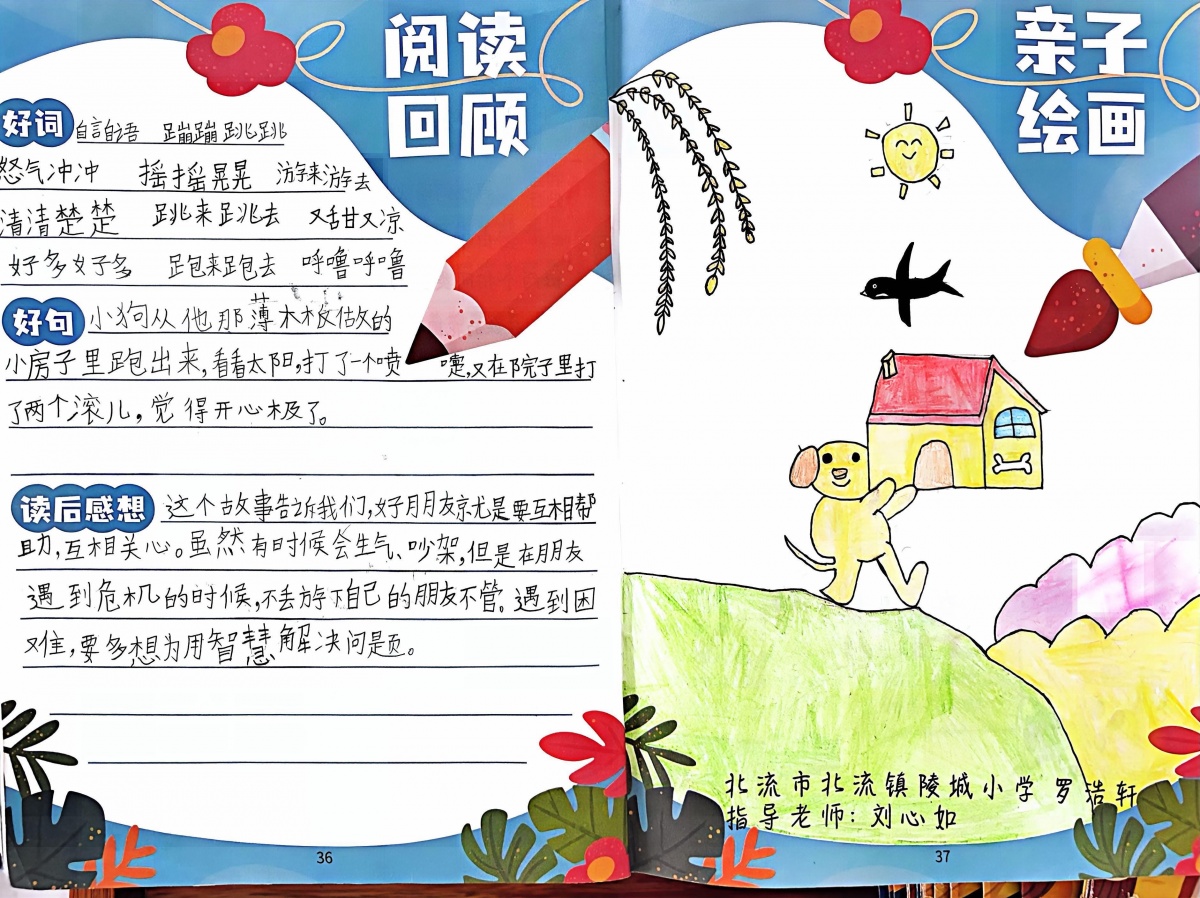 阅读
回顾
好词 自言自语 蹦蹦跳跳
怒气冲冲 摇摇晃晃 游来游去
清清楚楚 跳来跳去 又甜又凉
好多好多 跑来跑去 呼噜呼噜
好句 小狗从他那薄木板做的
小房子里跑出来,看看太阳,打了一个喷嚏,又在院子里打
了两个滚儿,觉得开心极了。
读后感想 这个故事告诉我们,好朋友就是要互相帮
助,互相关心。虽然有时候会生气、吵架,但是在朋友
遇到危机的时候,不丢放下自己的朋友不管。遇到困
难,要多想为用智慧解决问题。
36
亲子
绘画
北流市北流镇陵城小学 罗浩轩
指导老师:刘心如
37